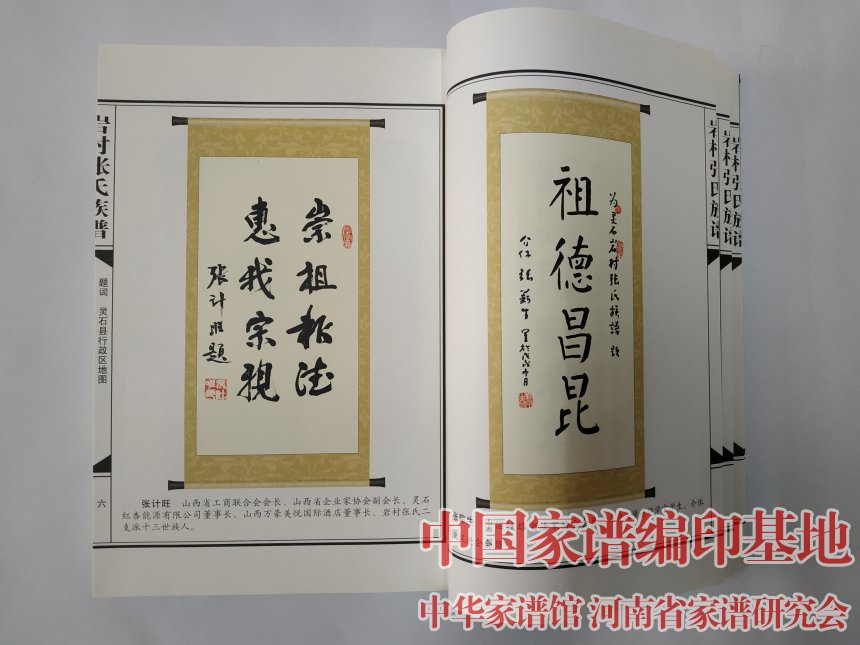 岩村张氏族谱
题词 灵石县行政区地图
六
崇祖积德
惠我宗亲
张计旺题
张计旺 山西省工商联合会会长、山西省企业家协会副会长、灵石
红杏能源有限公司董事长、山西万豪美悦国际酒店董事长、岩村张氏二
支派十三世族人。
为灵石岩村张氏族谱题
祖德昌昆
岩村张氏族谱
岩村张氏族谱
岩村张氏族谱
中国家谱编印基地
中华家谱馆 河南省家谱研究会